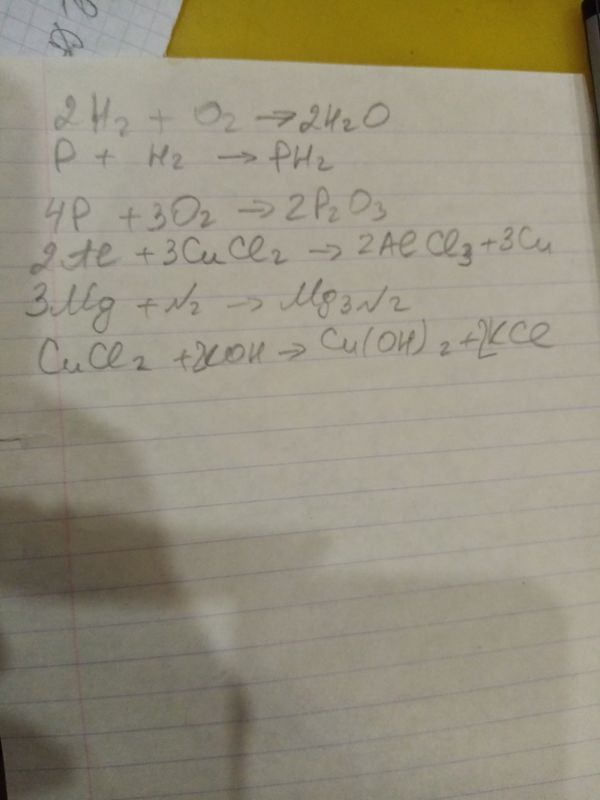 2H₂ + O₂ → 2H₂O
P + H₂ → PH₂
4P + 3O₂ → 2P₂O₃
2Al + 3CuCl₂ → 2AlCl₃ + 3Cu
3Mg + N₂ → Mg₃N₂
CuCl₂ + 2KOH → Cu(OH)₂ + 2KCl